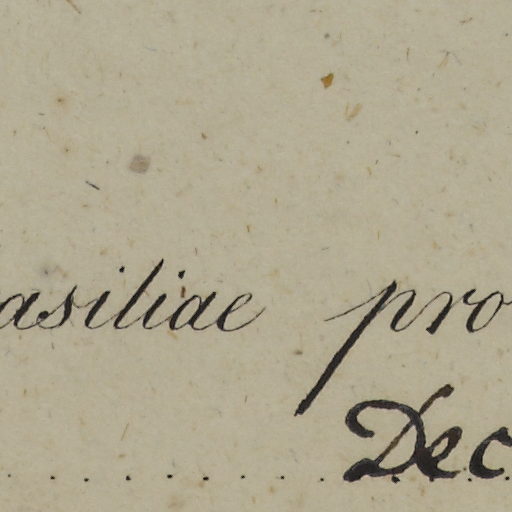 asiliae pro
Dec